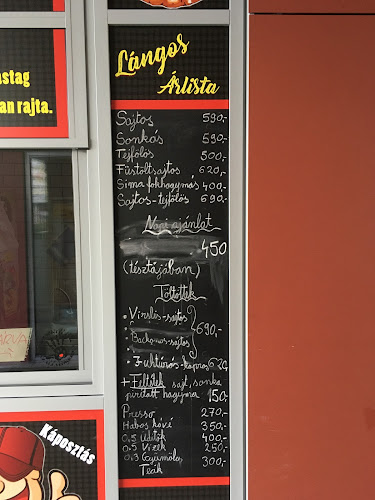 Lángos
Árlista
stag
an rajta.
Sajtos 590,-
Sonkás 590,-
Tejfölös 500,-
Füstöltsajtos 620,-
Sima, fokhagymás 400,-
Sajtos-tejfölös 690,-
Napi ajánlat
450
(tésztájában)
Töltöttek
• Virslis-sajtos
690,-
• Baconos-sajtos
kapros 620
+ Feltétek sajt, sonka
pirított hagyma 150,-
Presso 270,-
Habos kávé 350,-
0,5 Üdítők 400,-
0,5 Vizek 250,-
0,3 Gyümölcs, 300,-
Teák
Káposztás